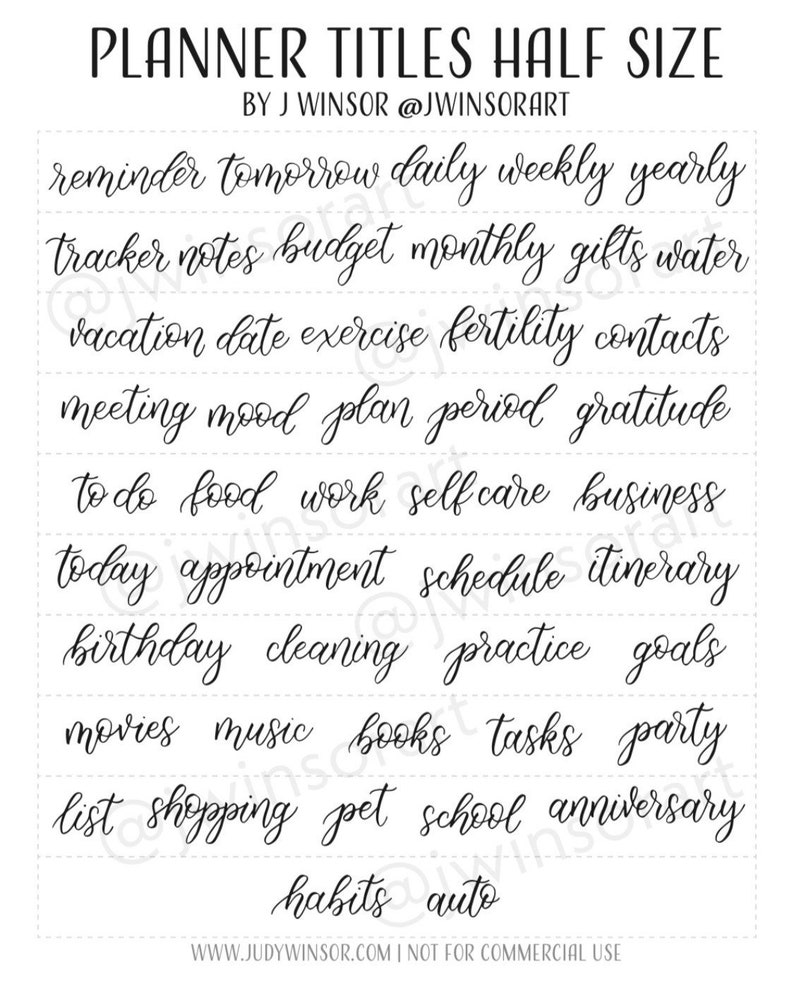 PLANNER TITLES HALF SIZE
BY J WINSOR @JWINSORART
reminder tomorrow daily weekly yearly
tracker notes budget monthly gifts water
vacation date exercise fertility contacts
meeting mood plan period gratitude
to do food work self care business
today appointment schedule itinerary
birthday cleaning practice goals
movies music books tasks party
list shopping pet school anniversary
habits auto
@jwinsorart
@jwinsorart
@jwinsorart
@jwinsorart
@jwinsorart
@jwinsorart
WWW.JUDYWINSOR.COM | NOT FOR COMMERCIAL USE